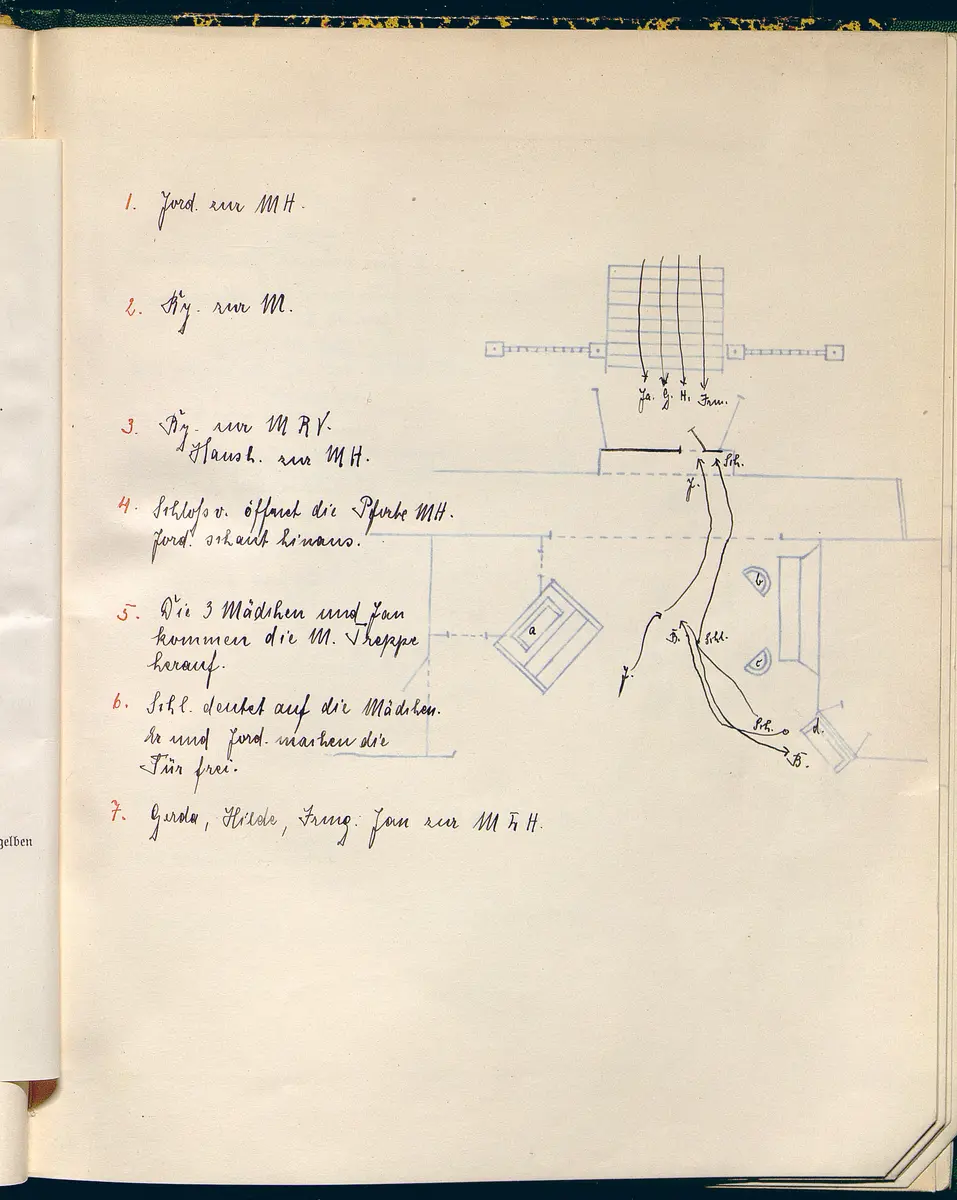 1. Jord. zur MH.
2. Ky. zur M.
3. Ky. zur M R V.
Haush. zur MH.
4. Schloßv. öffnet die Pforte MH.
Jord. schaut hinaus.
5. Die 3 Mädchen und Jan
kommen die M. Treppe
herauf.
6. Schl. deutet auf die Mädchen.
Er und Jord. machen die
Tür frei.
7. Gerda, Hilde, Irmg. Jan zur M H.
Ja. G. H. Irm.
Sch.
J.
a
b
B. Schl.
c
J.
Sch. d.
B.
gelben